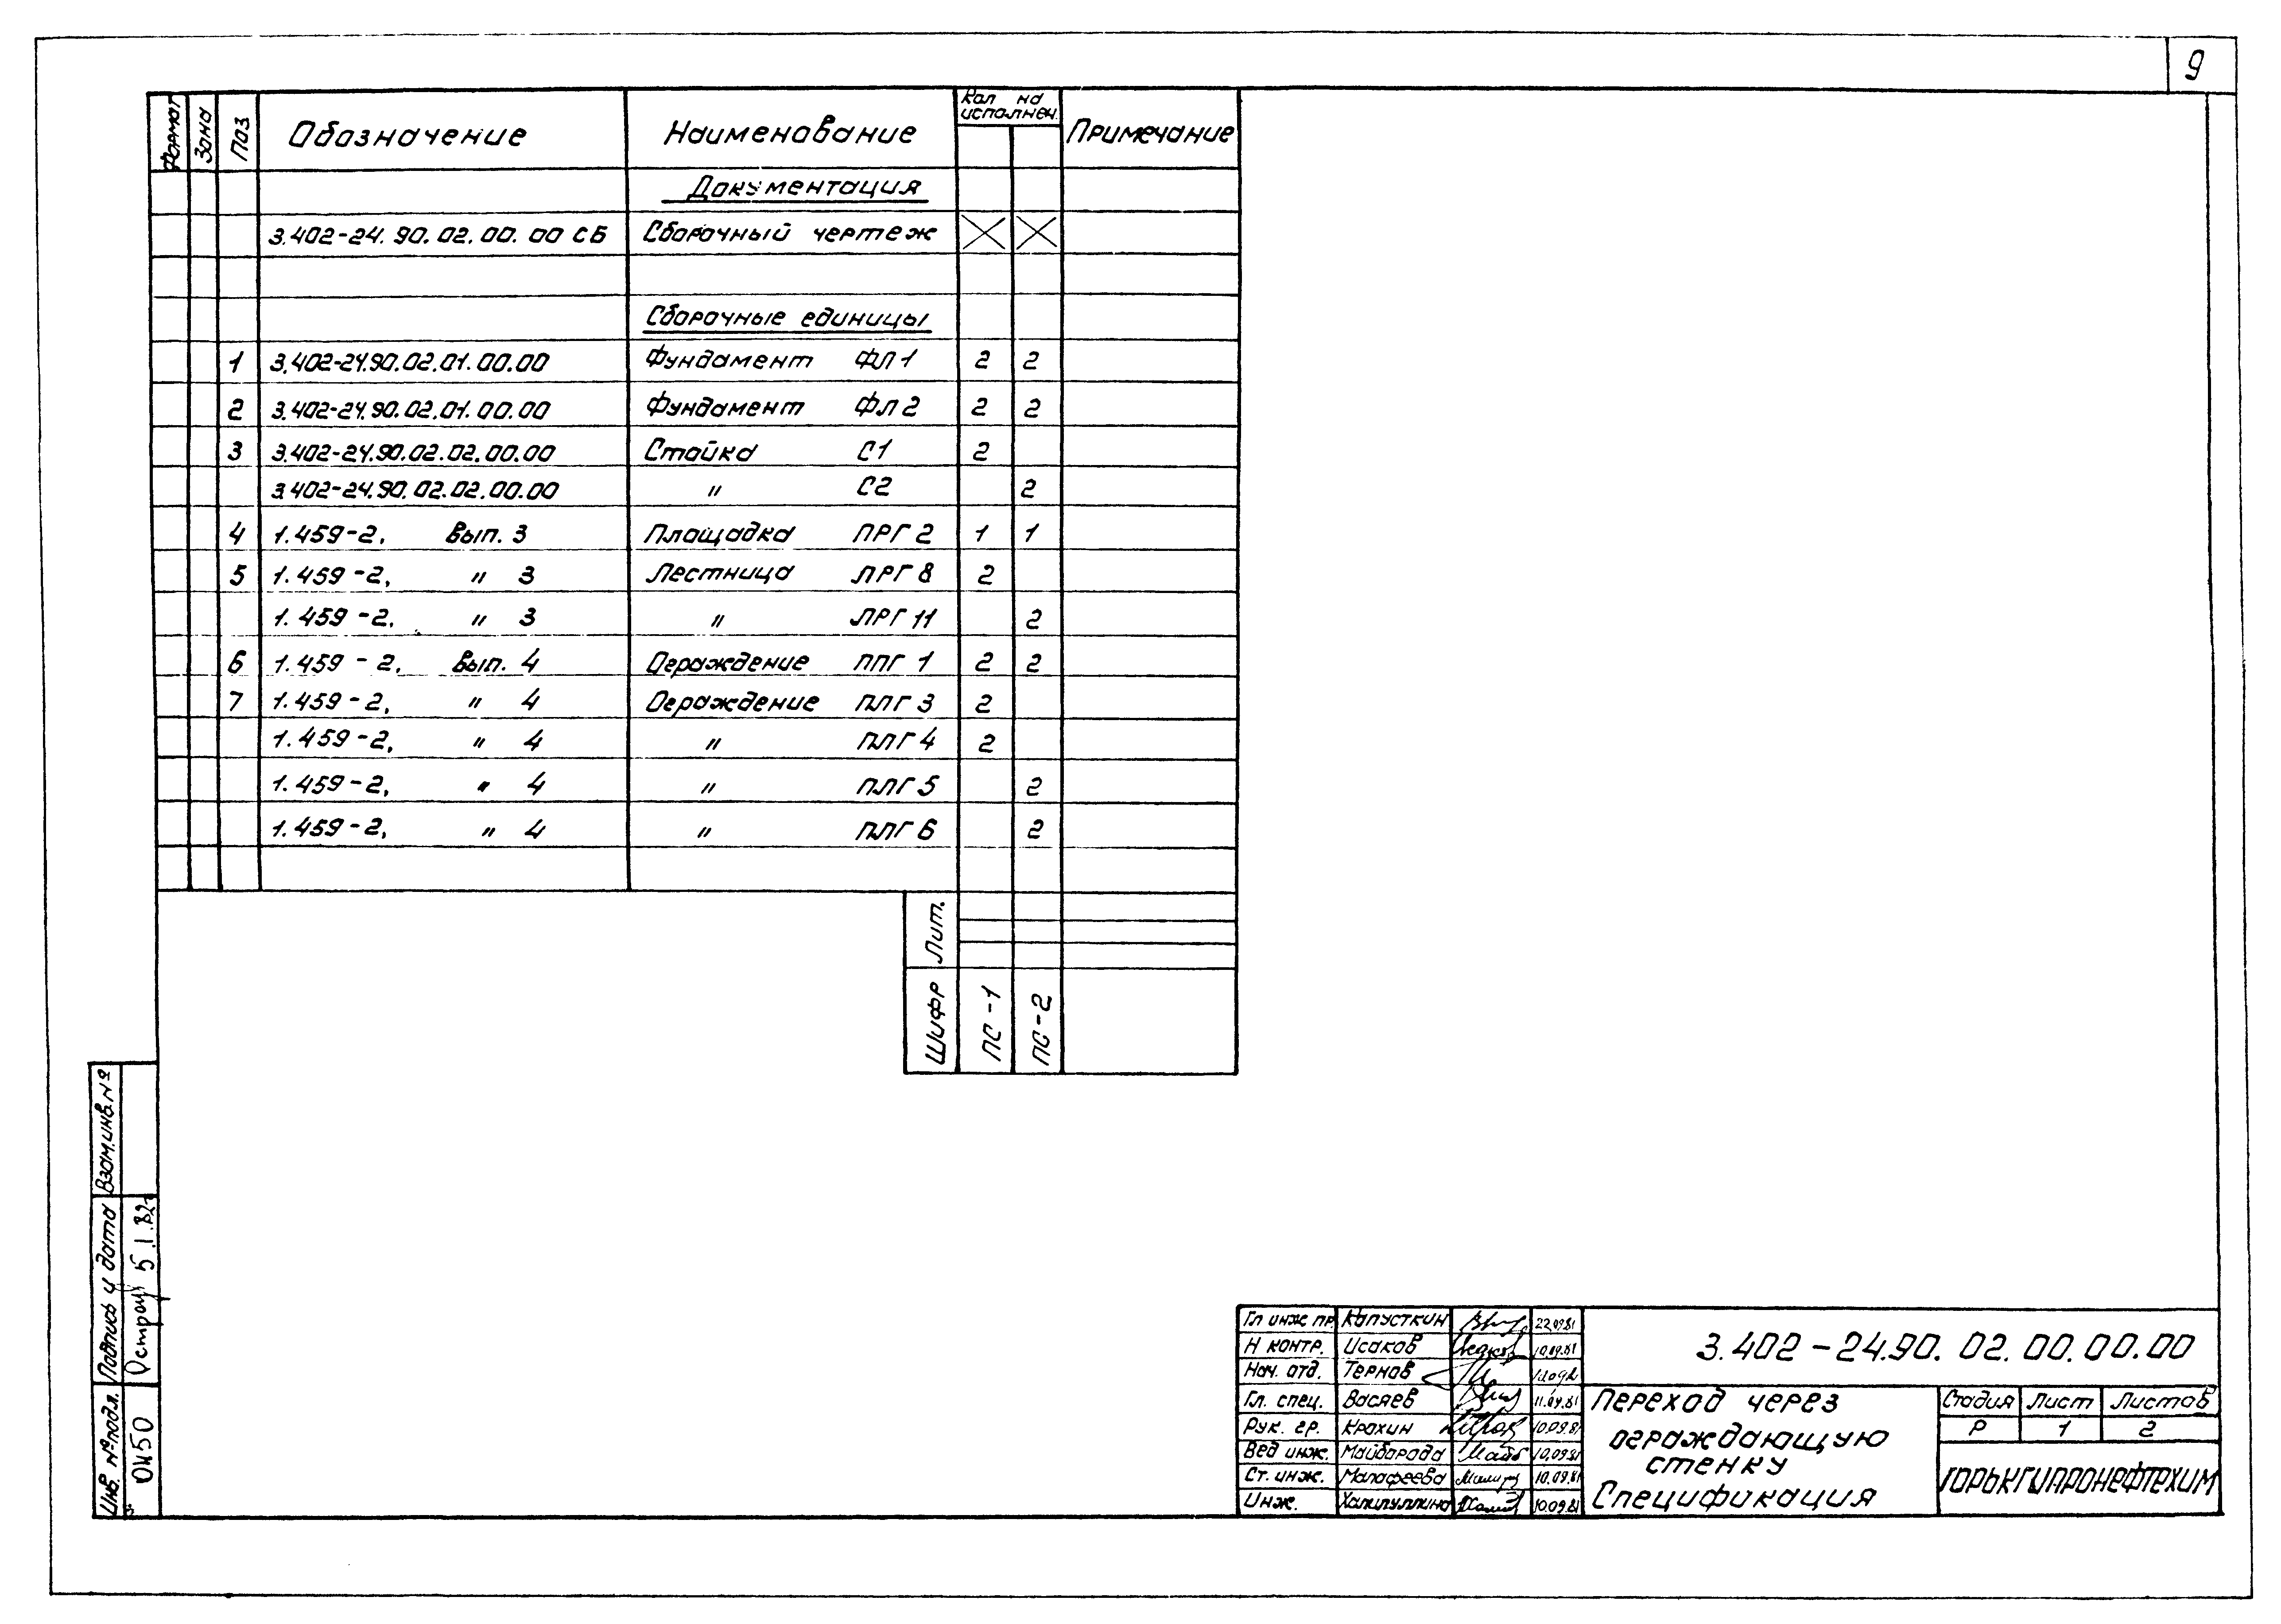 9
Формат Зона Поз Обозначение Наименование Кол на исполнен. Примечание
Документация
3.402-24.90.02.00.00 СБ Сборочный чертеж
Сборочные единицы
1 3.402-24.90.02.01.00.00 Фундамент ФЛ1 2 2
2 3.402-24.90.02.01.00.00 Фундамент ФЛ2 2 2
3 3.402-24.90.02.02.00.00 Стойка С1 2
3.402-24.90.02.02.00.00 " С2 2
4 1.459-2, Вып. 3 Площадка ПРГ 2 1 1
5 1.459-2, " 3 Лестница ЛРГ 8 2
1.459-2, " 3 " ЛРГ 11 2
6 1.459-2, Вып. 4 Ограждение ППГ 1 2 2
7 1.459-2, " 4 Ограждение ПЛГ 3 2
1.459-2, " 4 " ПЛГ 4 2
1.459-2, " 4 " ПЛГ 5 2
1.459-2, " 4 " ПЛГ 6 2
Лит.
Шифр ПС-1 ПС-2
Взам.инв.№
Подпись и дата 5.I.82г
Инв. № подл. 0450
Гл инж пр. Капусткин 22.09.81
Н контр. Исаков 10.09.81
Нач. отд. Тернов
Гл. спец. Васяев 11.09.81
Рук. гр. Крахин 10.09.81
Вед инж. Майборода 10.09.81
Ст. инж. Малафеева 10.09.81
Инж. Халилуллина 10.09.81
3.402-24.90.02.00.00.00
Переход через
ограждающую
стенку
Спецификация
Стадия Лист Листов
Р 1 2
ГОРЬКГИПРОНЕФТЕХИМ